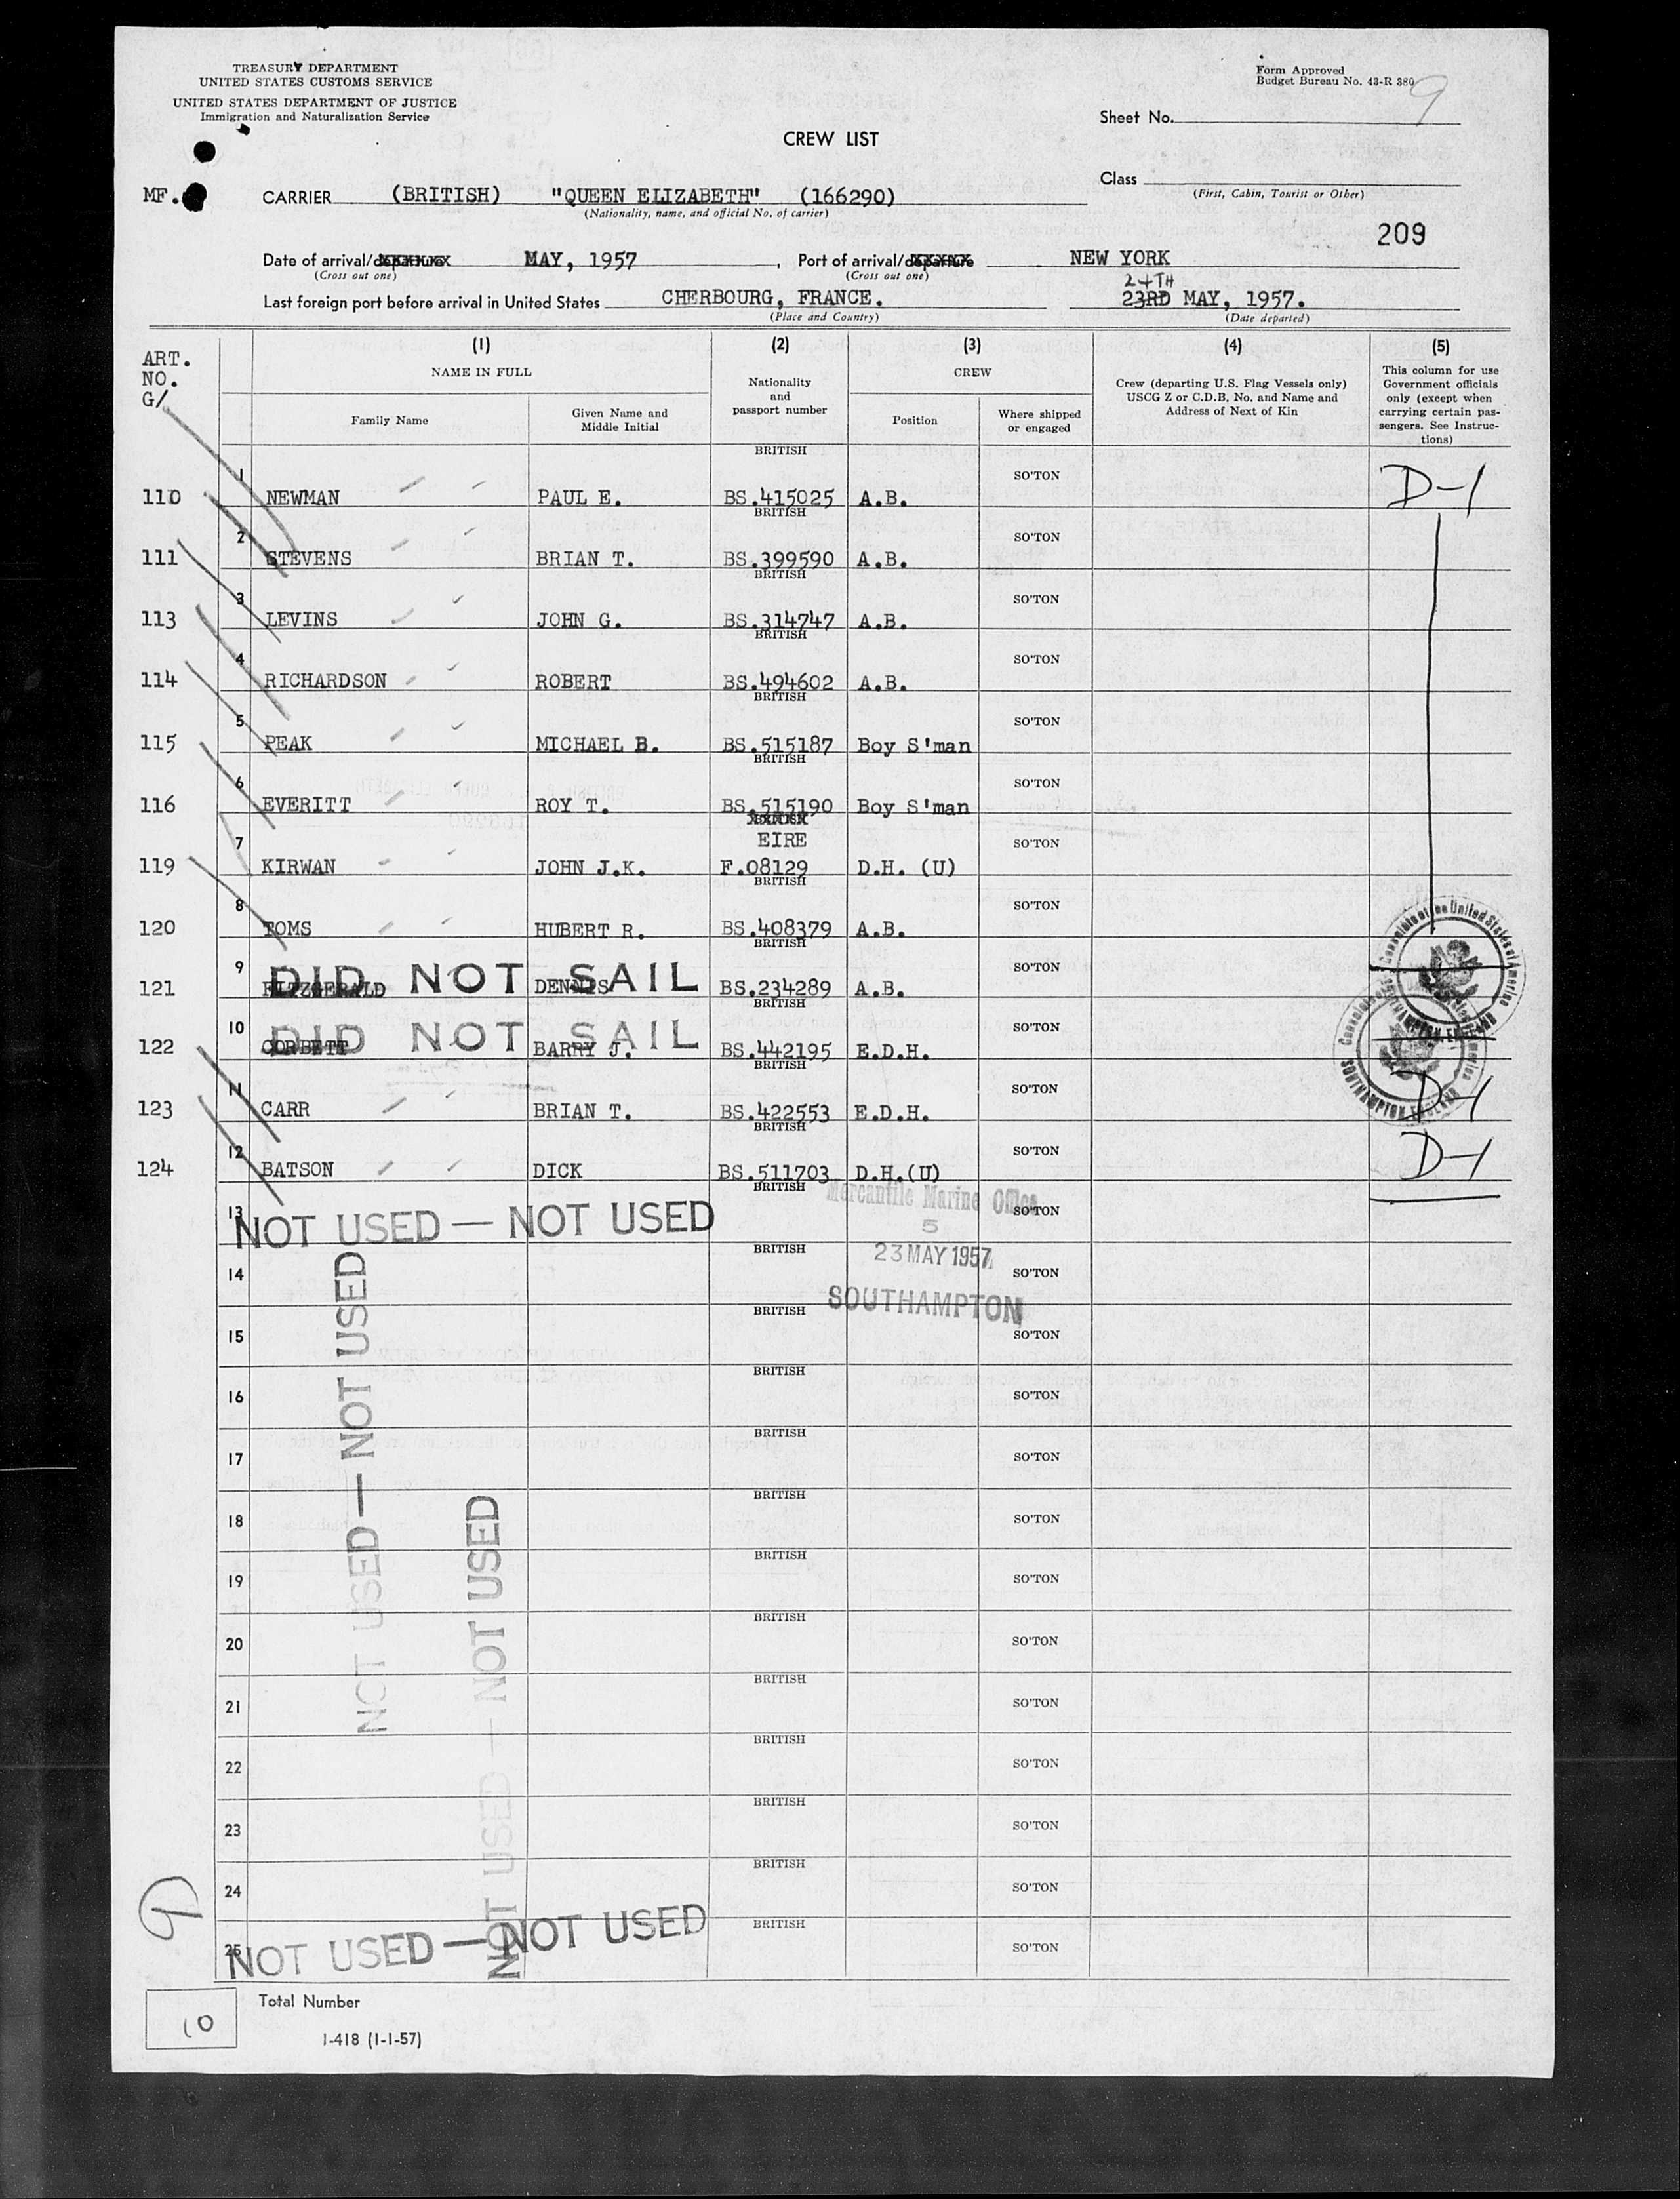 TREASURY DEPARTMENT
UNITED STATES CUSTOMS SERVICE
UNITED STATES DEPARTMENT OF JUSTICE
Immigration and Naturalization Service
Form Approved
Budget Bureau No. 43-R 380
9
Sheet No.
CREW LIST
Class
(First, Cabin, Tourist or Other)
MF.
CARRIER (BRITISH) "QUEEN ELIZABETH" (166290)
(Nationality, name, and official No. of carrier)
209
Date of arrival/departure MAY, 1957, Port of arrival/departure NEW YORK
(Cross out one) (Cross out one)
24TH
Last foreign port before arrival in United States CHERBOURG, FRANCE. 23RD MAY, 1957.
(Place and Country) (Date departed)
ART.
NO.
G/
(1) (2) (3) (4) (5)
NAME IN FULL
Family Name
Given Name and
Middle Initial
Nationality
and
passport number
CREW
Position
Where shipped
or engaged
Crew (departing U.S. Flag Vessels only)
USCG Z or C.D.B. No. and Name and
Address of Next of Kin
This column for use
Government officials
only (except when
carrying certain pas-
sengers. See Instruc-
tions)
BRITISH
110 1 NEWMAN PAUL E. BS.415025 A.B. SO'TON D-1
BRITISH
111 2 STEVENS BRIAN T. BS.399590 A.B. SO'TON
BRITISH
113 3 LEVINS JOHN G. BS.314747 A.B. SO'TON
BRITISH
114 4 RICHARDSON ROBERT BS.494602 A.B. SO'TON
BRITISH
115 5 PEAK MICHAEL B. BS.515187 Boy S'man SO'TON
BRITISH
116 6 EVERITT ROY T. BS.515190 Boy S'man SO'TON
EIRE
119 7 KIRWAN JOHN J.K. F.08129 D.H. (U) SO'TON
BRITISH
120 8 TOMS HUBERT R. BS.408379 A.B. SO'TON
BRITISH
DID NOT SAIL
121 9 FITZGERALD DENNIS BS.234289 A.B. SO'TON
BRITISH
DID NOT SAIL
122 10 CORBETT BARRY J. BS.442195 E.D.H. SO'TON
BRITISH
123 11 CARR BRIAN T. BS.422553 E.D.H. SO'TON D-1
BRITISH
124 12 BATSON DICK BS.511703 D.H.(U) SO'TON D-1
Consulate of the United States of America
SOUTHAMPTON, ENGLAND
SOUTHAMPTON ENGLAND
BRITISH
13 NOT USED — NOT USED SO'TON
Mercantile Marine Office
5
23 MAY 1957
SOUTHAMPTON
BRITISH
14 SO'TON
BRITISH
15 SO'TON
BRITISH
16 SO'TON
BRITISH
17 SO'TON
BRITISH
18 SO'TON
BRITISH
19 SO'TON
BRITISH
20 SO'TON
BRITISH
21 SO'TON
BRITISH
22 SO'TON
BRITISH
23 SO'TON
BRITISH
24 SO'TON
BRITISH
25 NOT USED — NOT USED SO'TON
NOT USED — NOT USED
NOT USED — NOT USED
9
10
Total Number
I-418 (1-1-57)